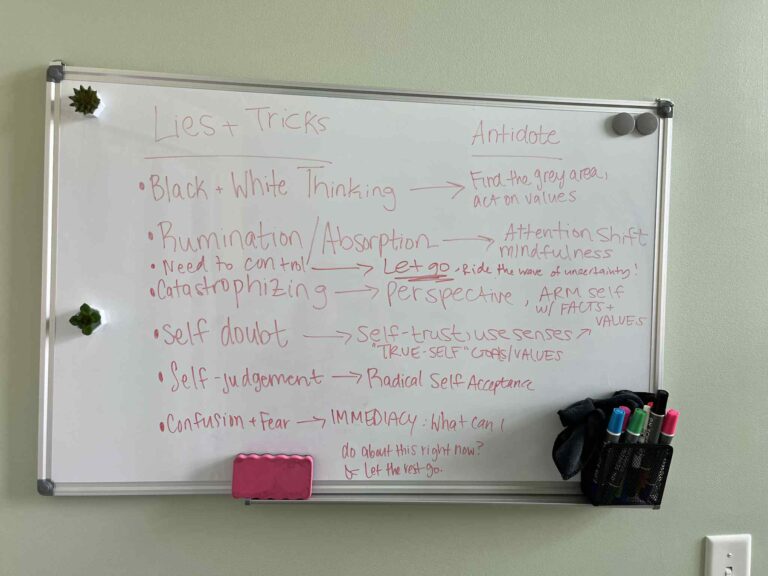 Lies + Tricks
Antidote
• Black + White Thinking → Find the grey area, act on values
• Rumination/Absorption → Attention Shift mindfulness
• Need to control → Let go, Ride the wave of uncertainty!
• Catastrophizing → perspective, ARM self w/ FACTS + VALUES
• Self doubt → Self-trust, use senses ↗
"TRUE-SELF" GOALS/VALUES
• Self-judgement → Radical Self Acceptance
• Confusion + Fear → IMMEDIACY: What can I
do about this right now?
& Let the rest go.